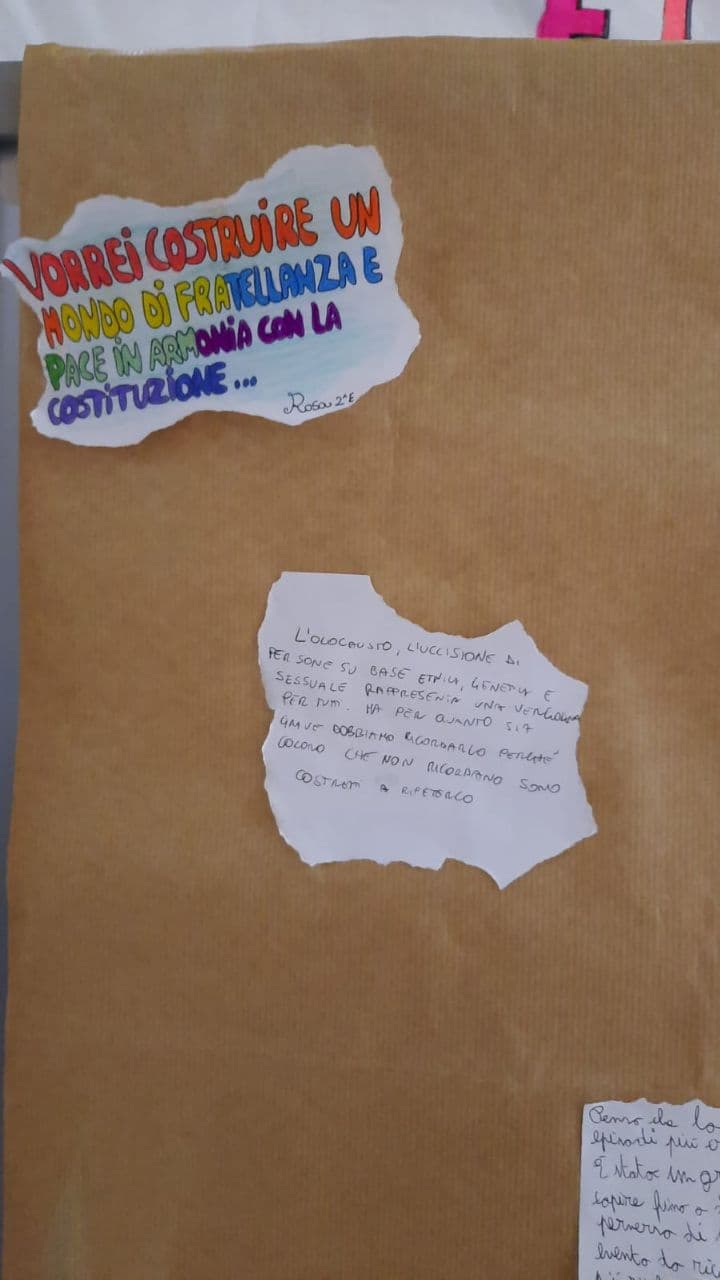 VORREI COSTRUIRE UN
MONDO DI FRATELLANZA E
PACE IN ARMONIA CON LA
COSTITUZIONE...
Rosa 2^E
L'OLOCAUSTO, L'UCCISIONE DI
PERSONE SU BASE ETNICA, GENETICA E
SESSUALE RAPPRESENTA UNA VERGOGNA
PER TUTTI. MA PER QUANTO SIA
GRAVE DOBBIAMO RICORDARLO PERCHÉ
COLORO CHE NON RICORDANO SONO
COSTRETTI A RIPETERLO
Penso che lo
episodi più
È stato un gr
capire fino a
perverso di
evento da ric